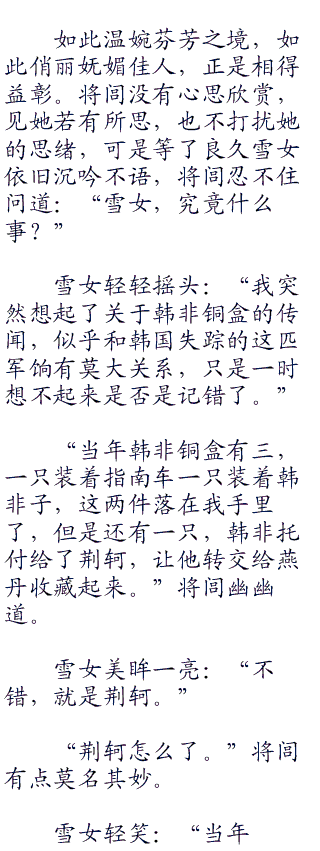 如此温婉芬芳之境，如
此俏丽妩媚佳人，正是相得
益彰。将闾没有心思欣赏，
见她若有所思，也不打扰她
的思绪，可是等了良久雪女
依旧沉吟不语，将闾忍不住
问道：“雪女，究竟什么
事？”
雪女轻轻摇头：“我突
然想起了关于韩非铜盒的传
闻，似乎和韩国失踪的这匹
军饷有莫大关系，只是一时
想不起来是否是记错了。”
“当年韩非铜盒有三，
一只装着指南车一只装着韩
非子，这两件落在我手里
了，但是还有一只，韩非托
付给了荆轲，让他转交给燕
丹收藏起来。”将闾幽幽
道。
雪女美眸一亮：“不
错，就是荆轲。”
“荆轲怎么了。”将闾
有点莫名其妙。
雪女轻笑：“当年